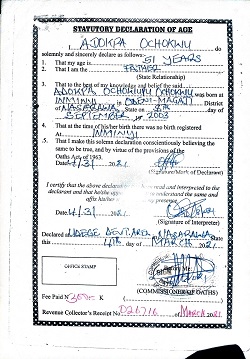 STATUTORY DECLARATION OF AGE
I, ADOKPA OCHOKWU do
solemnly and sincerely declare as follows:-
1. That my age is 51 YEARS
2. That I am the FATHER
(State Relationship)
3. That to the best of my knowledge and belief the said
ADOKPA OCHOKWU OCHOKWU was born at
in District
of NASARAWA State on 8TH
SEPTEMBER 2003
4. That at the time of his/her birth there was no birth registered
At
5. That I make this solemn declaration conscientiously believing the
same to be true, and by virtue of the provisions of the
Oaths Act of 1963.
Date 4/3/ 2021
(Signature/Mark of Declarant)
I certify that the above declaration was read and interpreted to the
declarant and that he/she appears to understand the same and
affix his/her
Date 4/3/ 2021
(Signature of Interpreter)
Declared at NASARAWA
this 4TH day of MARCH 2021
OFFICE STAMP
(COMMISSIONER OF OATHS)
Fee Paid N K
Revenue Collector's Receipt No of MARCH 2021